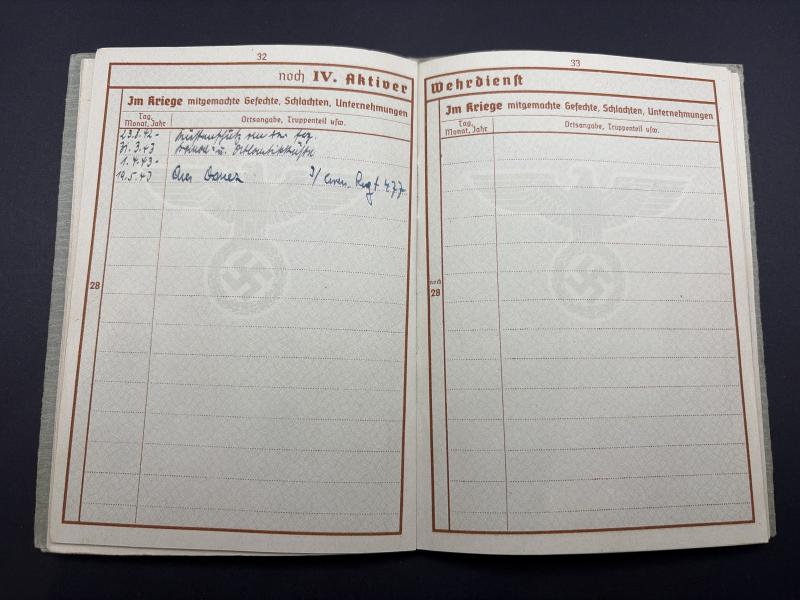 32
noch IV. Aktiver
Im Kriege mitgemachte Gefechte, Schlachten, Unternehmungen
Tag, Monat, Jahr
Ortsangabe, Truppenteil usw.
23.8.42-
31.3.43
u.
1.4.43-
19.5.43
Regt. 477
28
33
Wehrdienst
Im Kriege mitgemachte Gefechte, Schlachten, Unternehmungen
Tag, Monat, Jahr
Ortsangabe, Truppenteil usw.
noch
28